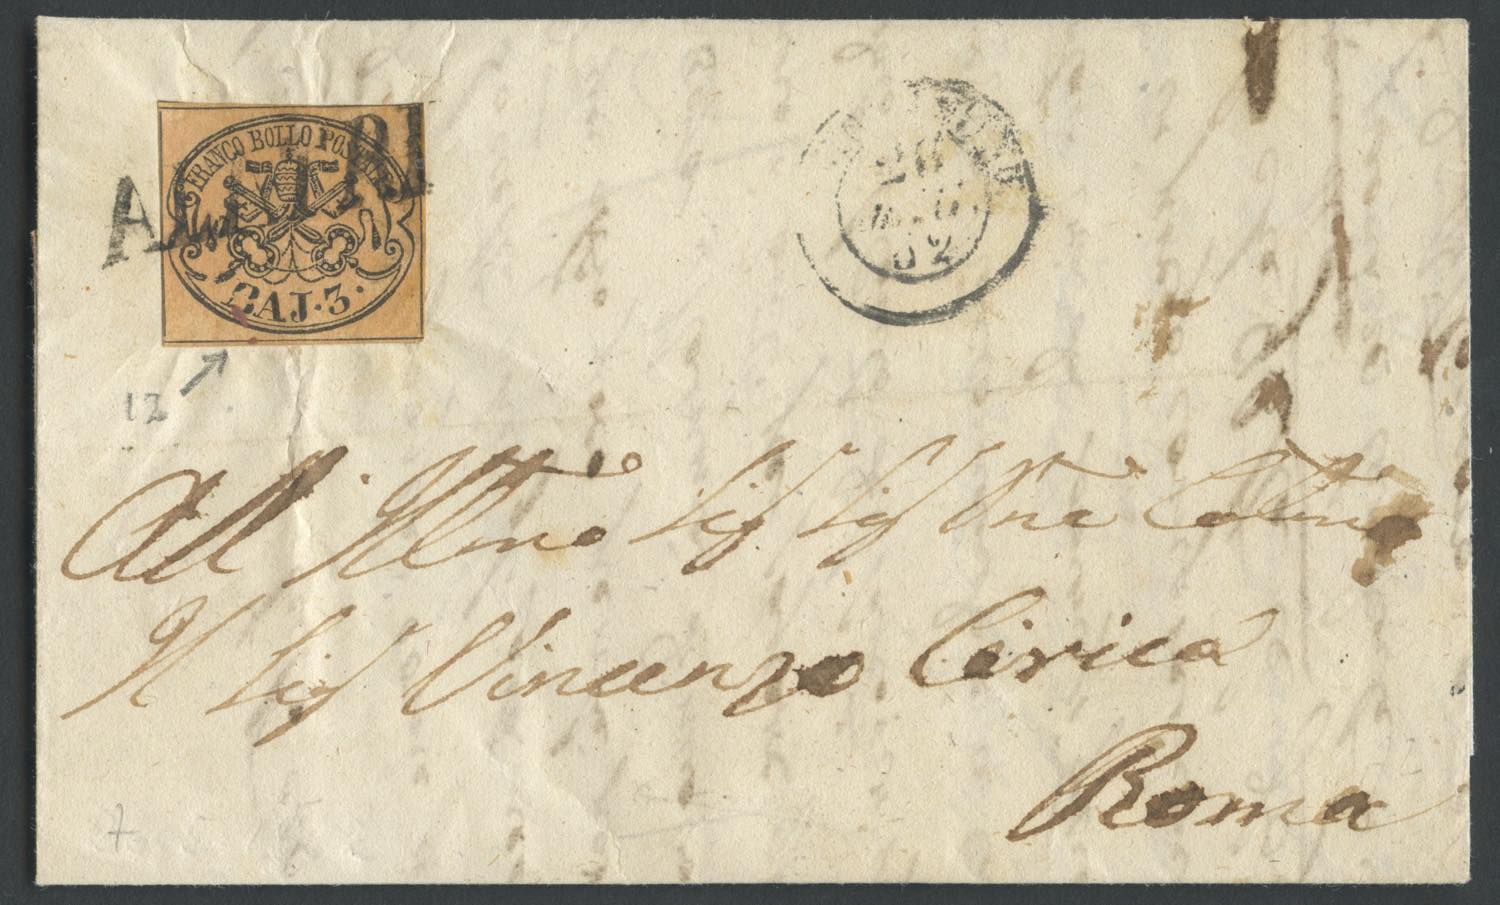 FRANCO BOLLO POSTALE
CAJ·3·
26
62
12
All Illmo Sig Sig Pne Colmo
Il Sig Vincenzo Cerica
Roma
7